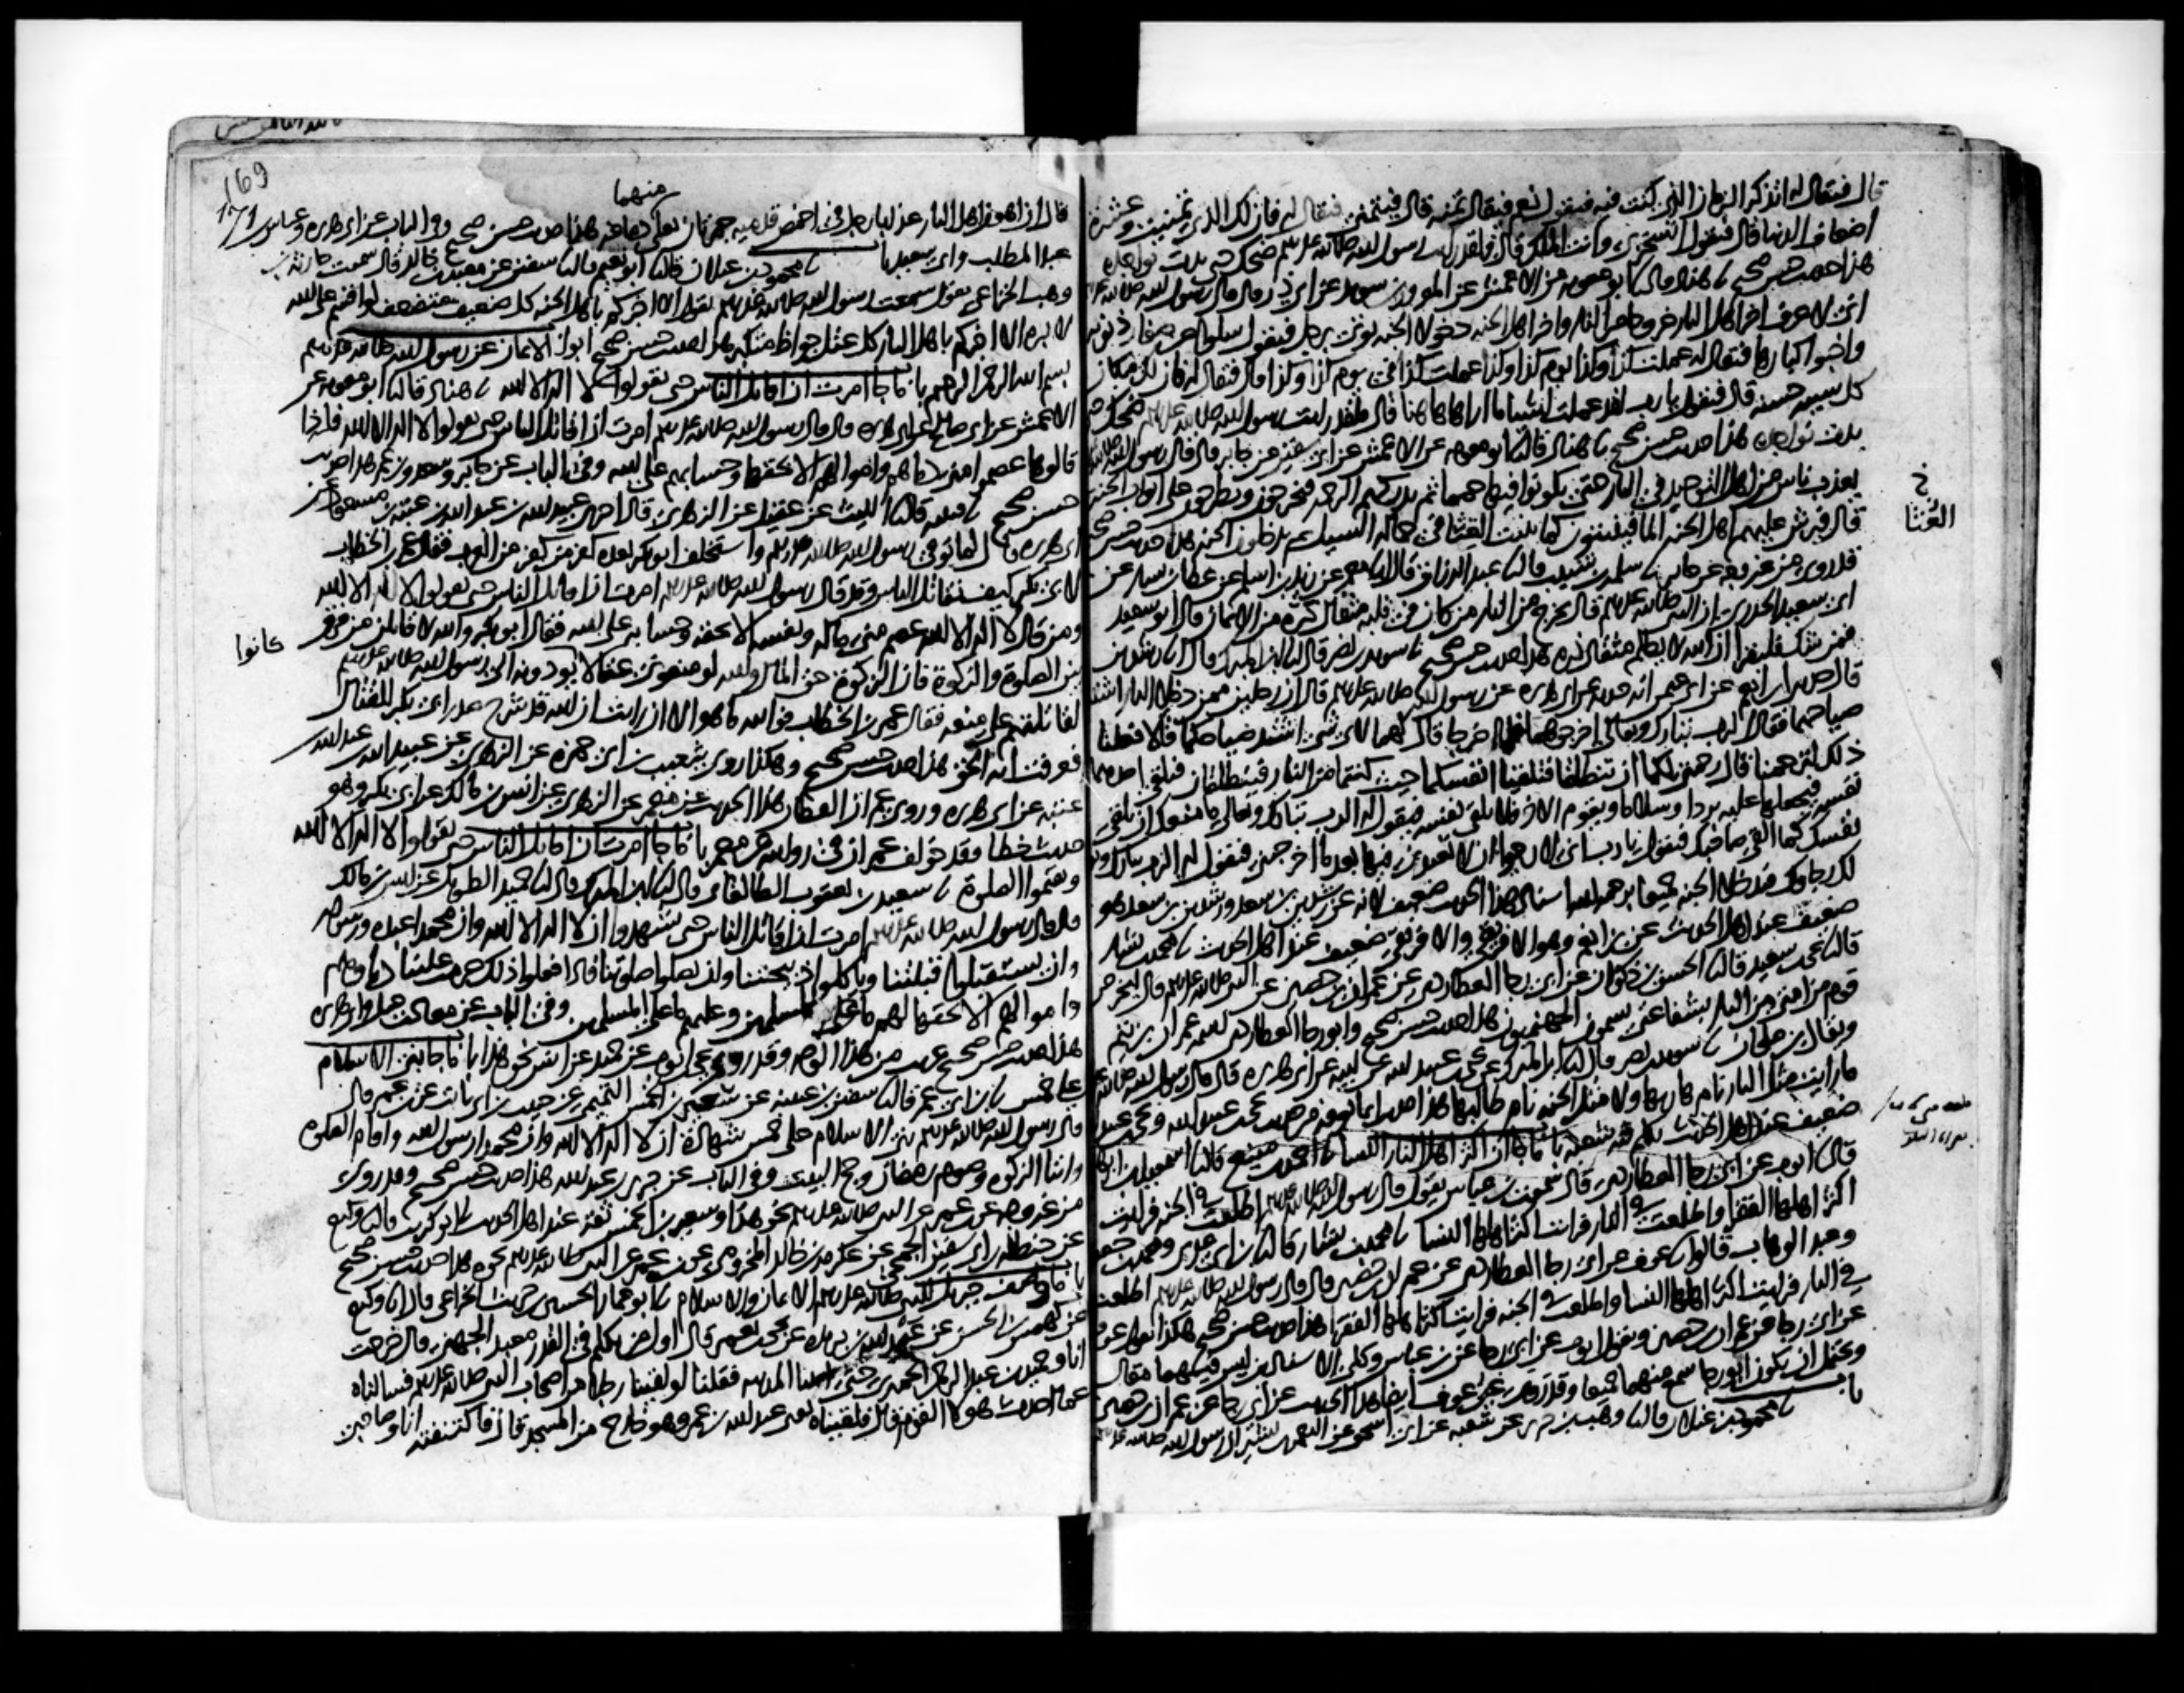 قال فيقال له اتذكر الزمان الذي كنت فيه فيقول نعم فيقال تمنه قال فيتمنى فيقال له فان لك الذي تمنيت وعشرة
اضعاف الدنيا قال فيقول اتسخر بي وانت الملك قال فلقد رايت رسول الله صلى الله عليه وسلم ضحك حتى بدت نواجذه
هذا حديث حسن صحيح نا هناد قال نا ابو معوية عن الاعمش عن المعرور بن سويد عن ابي ذر قال قال رسول الله صلى الله عليه
اني لاعرف اخر اهل النار خروجا من النار واخر اهل الجنة دخولا الجنة يوتى برجل فيقول سلوا عن صغار ذنوبه
واخبوا كبارها فيقال له عملت كذا وكذا يوم كذا وكذا عملت كذا في يوم كذا وكذا قال فيقال له فان لك مكان
كل سيية حسنة قال فيقول يا رب لقد عملت اشيا ما اراها هاهنا قال فلقد رايت رسول الله صلى الله عليه وسلم ضحك حتى
بدت نواجذه هذا حديث حسن صحيح نا هناد قال نا ابو معوية عن الاعمش عن ابي سفين عن جابر قال قال رسول الله
يعذب ناس من اهل التوحيد في النار حتى يكونوا فيها حمما ثم تدركهم الرحمة فيخرجون ويطرحون على ابواب الجنة
قال فيرش عليهم اهل الجنة الما فينبتون كما ينبت الغثا في حمالة السيل ثم يدخلون الجنة هذا حديث حسن صحيح
خ
الغثا
قد روي من غير وجه عن جابر نا سلمة بن شبيب قال نا عبد الرزاق قال انا معمر عن زيد بن اسلم عن عطا بن يسار عن
ابي سعيد الخدري ان النبي صلى الله عليه وسلم قال يخرج من النار من كان في قلبه مثقال ذرة من الايمان قال ابو سعيد
فمن شك فليقرا ان الله لا يظلم مثقال ذرة هذا حديث حسن صحيح نا سويد بن نصر قال انا ابن المبارك قال انا رشدين
عن ابي هريرة عن رسول الله صلى الله عليه وسلم قال ان رجلين ممن دخل النار اشتد
صياحهما فقال الرب تبارك وتعالى اخرجوهما فلما اخرجا قال لهما لاي شي اشتد صياحكما قالا فعلنا
ذلك لترحمنا قال رحمتي لكما ان تنطلقا فتلقيا انفسكما حيث كنتما من النار فينطلقان فيلقي احدهما
نفسه فيجعلها عليه بردا وسلاما ويقوم الاخر فلا يلقي نفسه فيقول له الرب تبارك وتعالى ما منعك ان تلقي
نفسك كما القى صاحبك فيقول يا رب اني لارجو ان لا تعيدني فيها بعد ما اخرجتني فيقول له الرب تبارك وتعالى
لك رجاوك فيدخلا الجنة جميعا برحمة الله اسناد هذا الحديث ضعيف لانه عن رشدين بن سعد ورشدين بن سعد هو
ضعيف عند اهل الحديث عن ابن انعم وهو الافريقي والافريقي ضعيف عند اهل الحديث نا محمد بن بشار
قال نا يحيى بن سعيد قال نا الحسن بن ذكوان عن ابي رجا العطاردي عن عمران بن حصين عن النبي صلى الله عليه وسلم قال ليخرجن
قوم من امتي من النار بشفاعتي يسمون الجهنميون هذا حديث حسن صحيح وابو رجا العطاردي اسمه عمران بن تيم
ويقال ابن ملحان نا سويد بن نصر قال انا ابن المبارك عن يحيى بن عبيد الله عن ابيه عن ابي هريرة قال قال رسول الله صلى الله عليه
ما رايت مثل النار نام هاربها ولا مثل الجنة نام طالبها هذا حديث انما نعرفه من حديث يحيى بن عبيد الله ويحيى بن عبيد الله
ضعيف عند اهل الحديث تكلم فيه شعبة باب ما جا ان اكثر اهل النار النسا نا احمد بن منيع قال نا اسمعيل بن ابراهيم
قال نا ايوب عن ابي رجا العطاردي قال سمعت بن عباس يقول قال رسول الله صلى الله عليه وسلم اطلعت في الجنة فرايت
اكثر اهلها الفقرا واطلعت في النار فرايت اكثر اهلها النسا نا محمد بن بشار قال نا ابن ابي عدي ومحمد بن جعفر
وعبد الوهاب قالوا نا عوف عن ابي رجا العطاردي عن عمران بن حصين قال قال رسول الله صلى الله عليه وسلم اطلعت
في النار فرايت اكثر اهلها النسا واطلعت في الجنة فرايت اكثر اهلها الفقرا هذا حديث حسن صحيح هكذا يقول عوف
عن ابي رجا عن عمران بن حصين ويقول ايوب عن ابي رجا عن بن عباس وكلا الاسنادين ليس فيهما مقال
ويحتمل ان يكون ابو رجا سمع منهما جميعا وقد روى غير عوف ايضا هذا الحديث عن ابي رجا عن عمران بن حصين
باب نا محمود بن غيلان قال نا وهب بن جرير عن شعبة عن ابي اسحق عن النعمن بن بشير ان رسول الله صلى الله عليه
169
171
منهما
قال ان اهون اهل النار عذابا رجل في اخمص قدميه جمرتان يغلي دماغه هذا حديث حسن صحيح وفي الباب عن ابي هريرة وعباس بن
عبد المطلب وابي سعيد باب نا محمود بن غيلان قال نا ابو نعيم قال نا سفين عن معبد بن خالد قال سمعت حارثة بن
وهب الخزاعي يقول سمعت رسول الله صلى الله عليه وسلم يقول الا اخبركم باهل الجنة كل ضعيف متضعف لو اقسم على الله
لابره الا اخبركم باهل النار كل عتل جواظ متكبر هذا حديث حسن صحيح ابواب الايمان عن رسول الله صلى الله عليه وسلم
بسم الله الرحمن الرحيم باب ما جا امرت ان اقاتل الناس حتى يقولوا لا اله الا الله نا هناد قال نا ابو معوية عن
الاعمش عن ابي صالح عن ابي هريرة قال قال رسول الله صلى الله عليه وسلم امرت ان اقاتل الناس حتى يقولوا لا اله الا الله فاذا
قالوها عصموا مني دماهم واموالهم الا بحقها وحسابهم على الله وفي الباب عن جابر وسعد وابن عمر هذا حديث
حسن صحيح نا قتيبة قال نا الليث عن عقيل عن الزهري قال اخبرني عبيد الله بن عبد الله بن عتبة بن مسعود عن
ابي هريرة قال لما توفي رسول الله صلى الله عليه وسلم واستخلف ابو بكر بعده كفر من كفر من العرب فقال عمر بن الخطاب
لابي بكر كيف نقاتل الناس وقد قال رسول الله صلى الله عليه وسلم امرت ان اقاتل الناس حتى يقولوا لا اله الا الله
ومن قال لا اله الا الله عصم مني ماله ونفسه الا بحقه وحسابه على الله فقال ابو بكر والله لاقاتلن من فرق
كانوا
بين الصلوة والزكوة فان الزكوة حق المال والله لو منعوني عقالا يودونه الى رسول الله صلى الله عليه وسلم
لقاتلتهم على منعه فقال عمر بن الخطاب فوالله ما هو الا ان رايت ان الله قد شرح صدر ابي بكر للقتال
فعرفت انه الحق هذا حديث حسن صحيح وهكذا روى شعيب بن ابي حمزة عن الزهري عن عبيد الله بن عبد الله
بن عتبة عن ابي هريرة وروى عمران القطان هذا الحديث عن معمر عن الزهري عن انس بن مالك عن ابي بكر وهو
حديث خطا وقد خولف عمران في روايته عن معمر باب ما جا امرت ان اقاتل الناس حتى يقولوا لا اله الا الله
ويقيموا الصلوة نا سعيد بن يعقوب الطالقاني قال نا ابن المبارك قال نا حميد الطويل عن انس بن مالك
قال قال رسول الله صلى الله عليه وسلم امرت ان اقاتل الناس حتى يشهدوا ان لا اله الا الله وان محمدا عبده ورسوله
وان يستقبلوا قبلتنا وياكلوا ذبيحتنا وان يصلوا صلوتنا فاذا فعلوا ذلك حرمت علينا دماوهم
واموالهم الا بحقها لهم ما للمسلمين وعليهم ما على المسلمين وفي الباب عن معاذ بن جبل وابي هريرة
هذا حديث حسن صحيح غريب من هذا الوجه وقد روى يحيى بن ايوب عن حميد عن انس نحو هذا باب ما جا بني الاسلام
على خمس نا ابن ابي عمر قال نا سفين بن عيينة عن سعير بن الخمس التميمي عن حبيب بن ابي ثابت عن بن عمر قال
قال رسول الله صلى الله عليه وسلم بني الاسلام على خمس شهادة ان لا اله الا الله وان محمدا رسول الله واقام الصلوة
وايتا الزكوة وصوم رمضان وحج البيت وفي الباب عن جرير بن عبد الله هذا حديث حسن صحيح وقد روي
من غير وجه عن بن عمر عن النبي صلى الله عليه وسلم نحو هذا وسعير بن الخمس ثقة عند اهل الحديث نا ابو كريب قال نا وكيع
عن حنظلة بن ابي سفين الجمحي عن عكرمة بن خالد المخزومي عن بن عمر عن النبي صلى الله عليه وسلم نحوه هذا حديث حسن صحيح
باب ما وصف جبريل للنبي صلى الله عليه وسلم الايمان والاسلام نا ابو عمار الحسين بن حريث الخزاعي قال انا وكيع
عن كهمس بن الحسن عن عبد الله بن بريدة عن يحيى بن يعمر قال اول من تكلم في القدر معبد الجهني قال خرجت
انا وحميد بن عبد الرحمن الحميري حتى اتينا المدينة فقلنا لو لقينا رجلا من اصحاب النبي صلى الله عليه وسلم فسالناه
عما احدث هولا القوم قال فلقيناه يعني عبد الله بن عمر وهو خارج من المسجد قال فاكتنفته انا وصاحبي